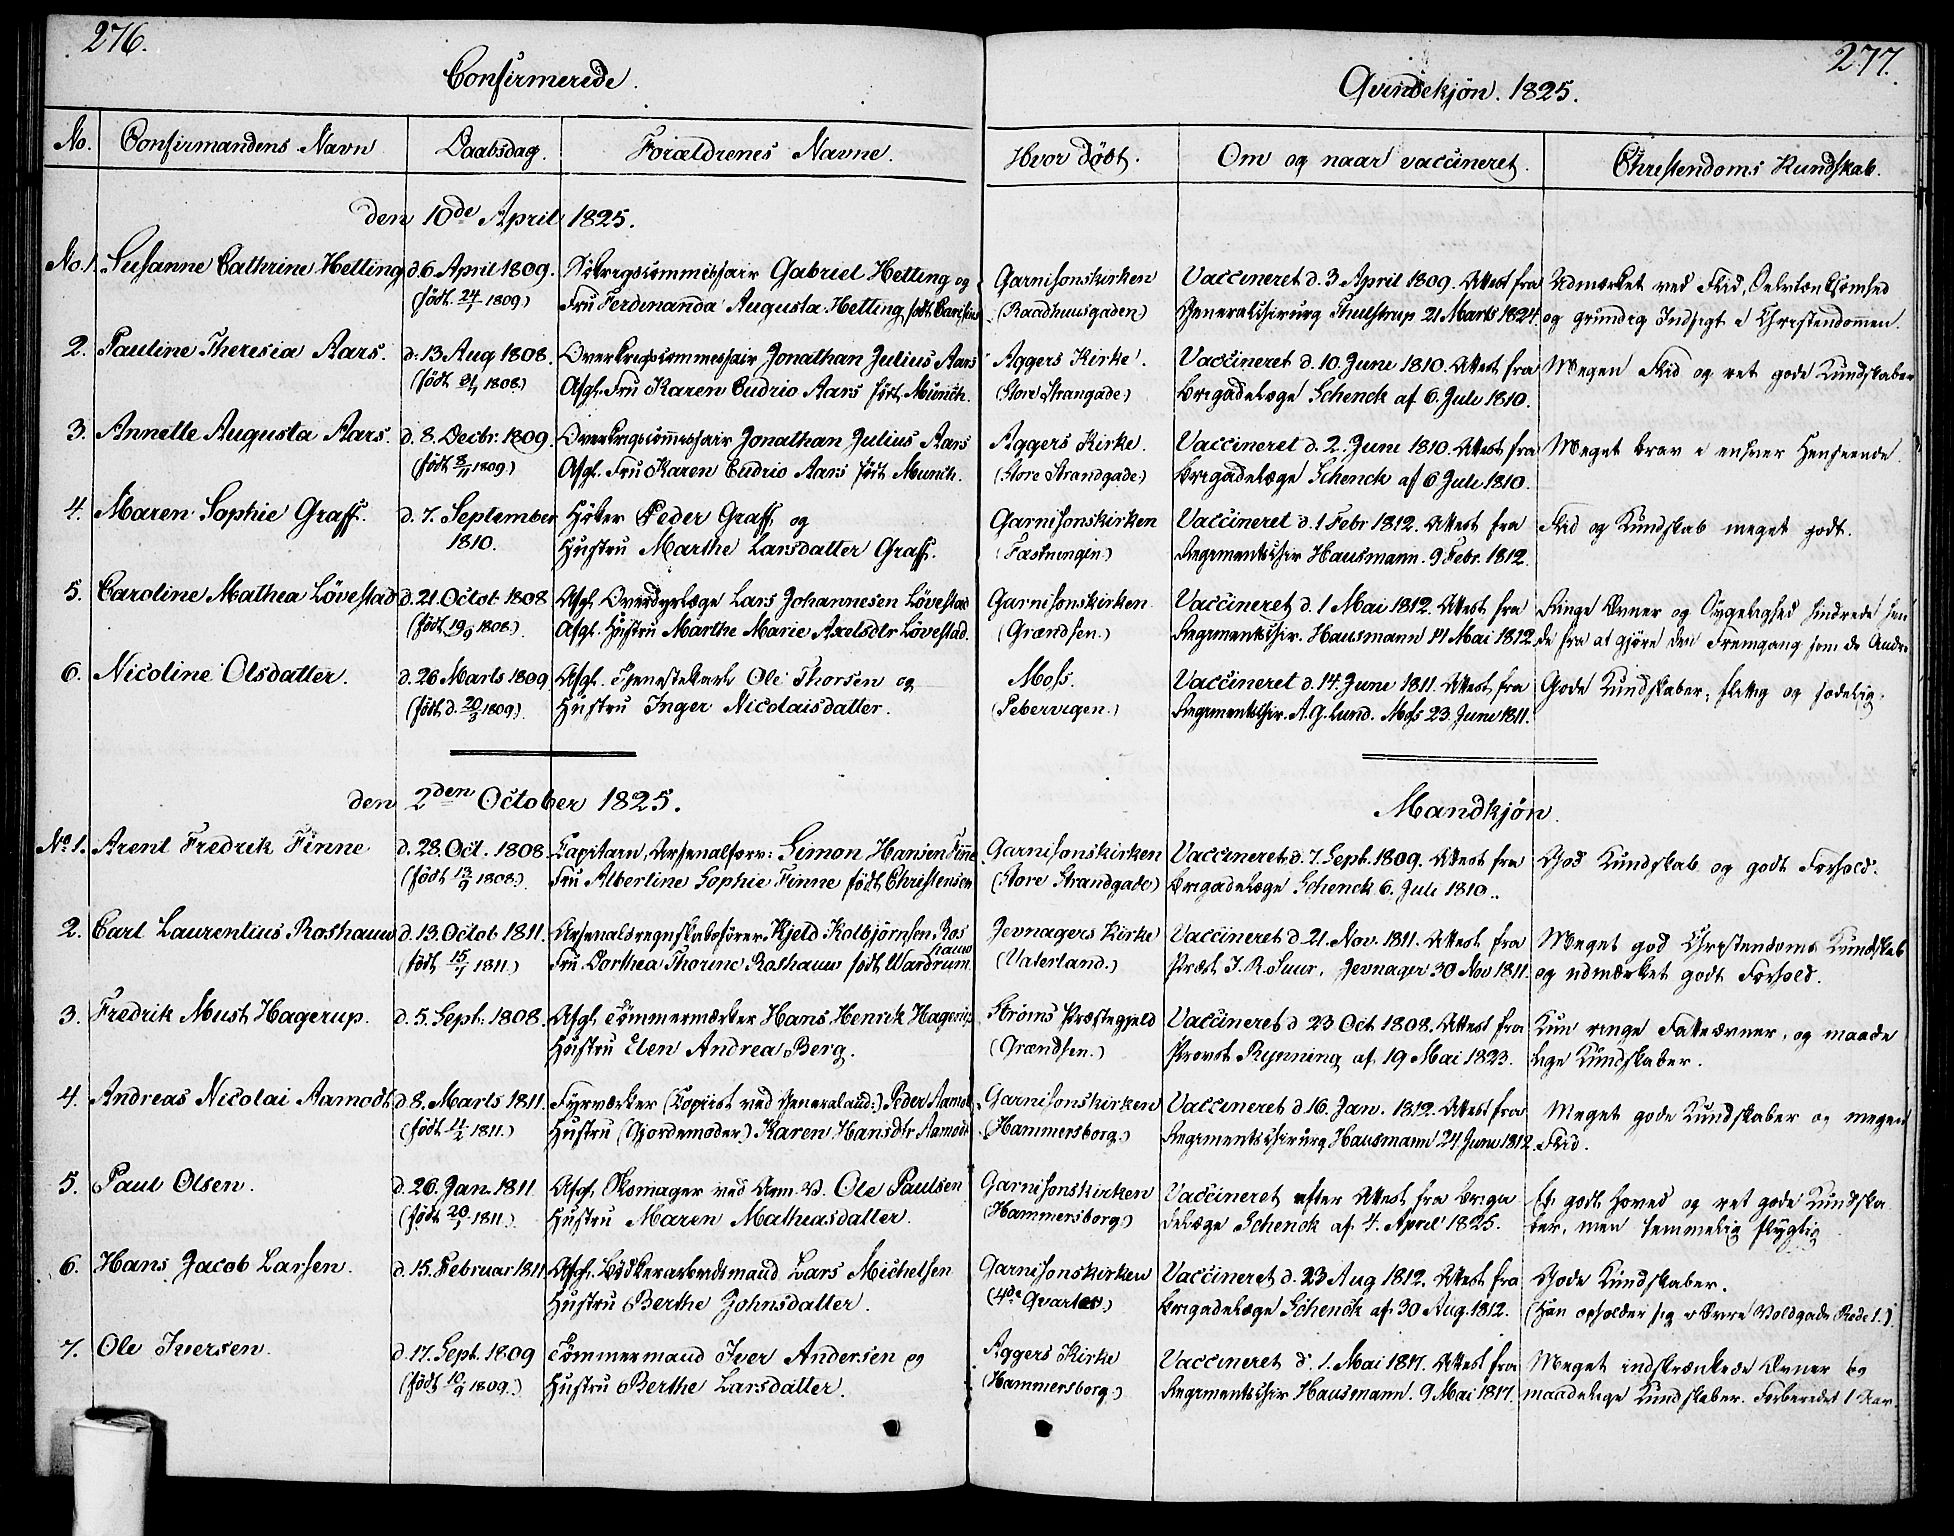 276.
Confirmerede.
No.
Confirmandens Navn
Daabsdag.
Forældrenes Navne.
den 10de April 1825.
No. 1. Susanne Cathrine Hetting
d. 6 April 1809.
(född 24/1 1809)
Gabriel Hetting og
Fru Ferdinanda Augusta Hetting, født
2. Pauline Theresia Aars.
d. 13 Aug 1808.
(født 1808.)
Overkrigscommissair Jonathan Julius Aars
Afgl. Fru Karen Aars født Munch.
3. Annette Augusta Aars.
d. 8. Decbr. 1809.
(født 8/11 1809)
Overkrigscommissair Jonathan Julius Aars
Afgl. Fru Karen Aars født Munch.
4. Maren Sophie Graff.
d. 7. September
1810.
Høker Peder Graff og
Hustru Marthe Larsdatter Graff.
5. Caroline Mathea Lövestad
d. 21. Octob 1808
(født 19/9 1808.)
Afgl. Lars Johannesen Lövestad
Afgl. Hustru Marthe Marie Axelsdtr Lövestad.
6. Nicoline Olsdatter.
d. 26 Marts 1809
(født d. 20/3 1809.)
Afgl. Tjenestekarl Ole Thorsen og
Hustru Inger Nicolaisdatter.
den 2den October 1825.
No. 1. Arent Fredrik Finne
d. 28. Oct. 1808.
(født 13/9 1808.)
Capitain, Arsenalforv: Simon Hansen Finne
Fru Albertine Sophie Finne født Christensen
2. Carl Laurentius Roshauw
d. 13. Octob 1811.
(født 1811.)
Arsenalsregnskabsfører Kjeld Kolbjørnsen Ros
hauw
Fru Dorthea Thorine Roshauw født Wardrum.
3. Fredrik Must Hagerup.
d. 5. Sept. 1808.
Afgl. Tömmermærker Hans Henrik Hagerup
Hustru Elen Andrea Berg.
4. Andreas Nicolai Aamodt
d. 8. Marts 1811.
(født 1811.)
Fyrværker (Copiist ved Generalaud:) Peder Aamodt
Hustru (Gjordemoder) Karen Hansdtr Aamodt
5. Paul Olsen.
d. 26. Jan. 1811.
(født 20/1 1811.)
Afgl. Skomager ved Ole Paulsen
Hustru Maren Mathiasdatter.
6. Hans Jacob Larsen.
d. 15. Februar 1811
Afgl. Lars Michelsen
Hustru Berthe Johnsdatter.
7. Ole Iversen.
d. 17. Sept. 1809
(født 10/9 1809.)
Tömmermand Iver Andersen og
Hustru Berthe Larsdatter.
277.
Qvindekjön. 1825.
Hvor Döbt.
Om og naar vaccineret.
Christendoms Kundskab.
Garnisonskirken
(Raadhuusgaden)
Vaccineret d. 3 April 1809. Attest fra
Generalchirurg Thulstrup 21 Marts 1824.
Udmærket ved Flid, Velanstændighed
og grundig Indsigt i Christendommen.
Aggers Kirke.
(Store Strangade)
Vaccineret d. 10. Juni 1810. Attest fra
Brigadelæge Schenck af 6. Juli 1810.
Megen Flid og ret gode Kundskaber
Aggers Kirke.
(Store Strandgade)
Vaccineret d. 2. Juni 1810. Attest fra
Brigadelæge Schenck af 6 Juli 1810.
Meget brav i enhver Henseende
Garnisonskirken
(Fæstningen)
Vaccineret d. 1 Febr 1812. Attest fra
Regimentschir Hausmann. 9 Febr. 1812.
Flid og Kundskab meget godt.
Garnisonskirken.
(Grændsen.)
Vaccineret d. 1 Mai 1812. Attest fra
Regimentschir. Hausmann 11 Mai 1812.
Ringe Evner og Sygelighed hindrede hen
de fra at gjöre den Fremgang som de Andre
Moss.
(Pebervigen.)
Vaccineret d. 14. Juni 1811. Attest fra
Regimentschir. A. G. Lund. Moss 23. Juni 1811.
Gode Kundskaber, flittig og sædelig.
Mandkjön.
Garnisonskirken
(Store Strandgade)
Vaccineret d. 7. Sept. 1809. Attest fra
Brigadelæge Schenck 6. Juli 1810.
God Kundskab og godt Forhold.
Jevnagers Kirke
(Vaterland.)
Vaccineret d. 21. Nov. 1811. Attest fra
Præst J. R. Suur. Jevnager 30 Nov 1811.
Meget god Christendoms Kundskab
og udmærket godt Forhold.
Ströms Præstegjeld
(Grændsen.)
Vaccineret d 23 Oct 1808. Attest fra
Provst Rynning af 19 Mai 1823.
Kun ringe Fatteevner, og maade
lige Kundskaber.
Garnisonskirken
(Hammersborg.)
Vaccineret d. 16. Jan. 1812. Attest fra
Regimentschirurg Hausmann 24 Juni 1812.
Meget gode Kundskaber og megen
Flid.
Garnisonskirken
(Hammersborg.)
Vaccineret efter Attest fra Briga
delæge Schenck af 4. April 1825.
Et godt Hoved og ret gode Kundska
ber, men temmelig flygtig
Garnisonskirken
(4de Qvarter)
Vaccineret d. 23 Aug 1812. Attest fra
Brigadelæge Schenck af 30 Aug. 1812.
Gode Kundskaber.
(Han opholder sig i Övre Voldgade Rode 1.)
Aggers Kirke
(Hammersborg.)
Vaccineret d. 1. Mai 1817. Attest fra
Regimentschir Hausmann. 9 Mai 1817.
Meget indskrænkede Evner og
maadelige Kundskaber. Forberedet 1 Aar